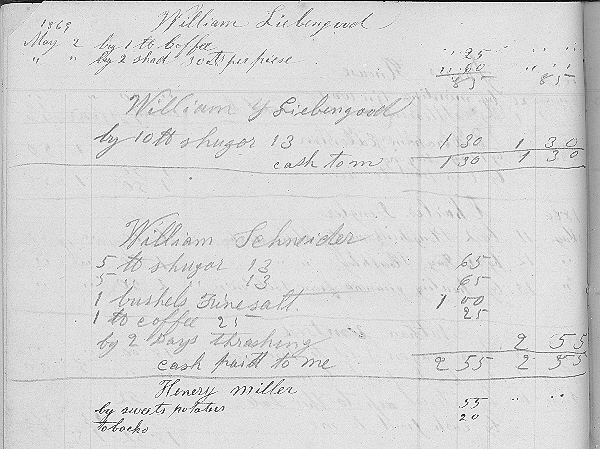 1869 William Liebengood
May 2 by 1 lb Coffee " 25 " " "
" " by 2 shad 30 cts per piese " 60 " " "
85 85
William Y Liebengood
by 10 lb shugor 13 1 30 1 30
cash to m 1 30 1 30
William Schneider
5 lb shugor 13 65
5 " " 13 65
1 bushels Fine salt 1 00
1 lb coffee 25 25
by 2 Days thrashing 2 55
cash paid to me 2 55 2 55
Henery Miller
by sweets potatus 55 " "
tobacko 20